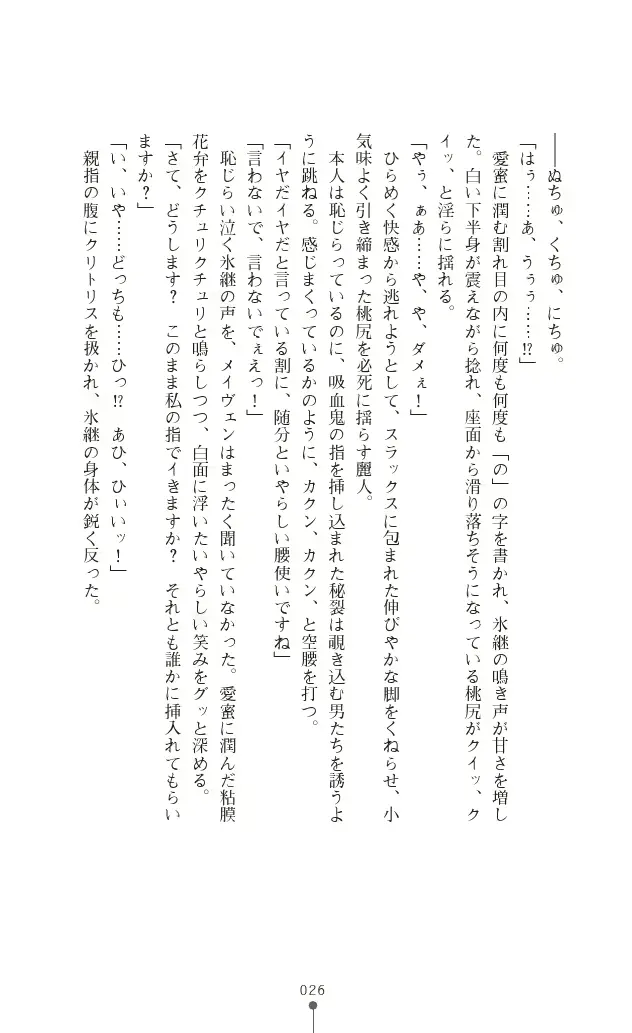 ――ぬちゅ、くちゅ、にちゅ。
「はぅ……あ、うぅぅ……⁉」
　愛蜜に潤む割れ目の内に何度も何度も「の」の字を書かれ、氷継の鳴き声が甘さを増し
た。白い下半身が震えながら捻れ、座面から滑り落ちそうになっている桃尻がクイッ、ク
イッ、と淫らに揺れる。
「やぅ、ぁあ……や、や、ダメぇ！」
　ひらめく快感から逃れようとして、スラックスに包まれた伸びやかな脚をくねらせ、小
気味よく引き締まった桃尻を必死に揺らす麗人。
　本人は恥じらっているのに、吸血鬼の指を挿し込まれた秘裂は覗き込む男たちを誘うよ
うに跳ねる。感じまくっているかのように、カクン、カクン、と空腰を打つ。
「イヤだイヤだと言っている割に、随分といやらしい腰使いですね」
「言わないで、言わないでぇえっ！」
　恥じらい泣く氷継の声を、メイヴェンはまったく聞いていなかった。愛蜜に潤んだ粘膜
花弁をクチュリクチュリと鳴らしつつ、白面に浮いたいやらしい笑みをグッと深める。
「さて、どうします？　このまま私の指でイきますか？　それとも誰かに挿入れてもらい
ますか？」
「い、いや……どっちも……ひっ⁉　あひ、ひぃいッ！」
　親指の腹にクリトリスを扱かれ、氷継の身体が鋭く反った。
026